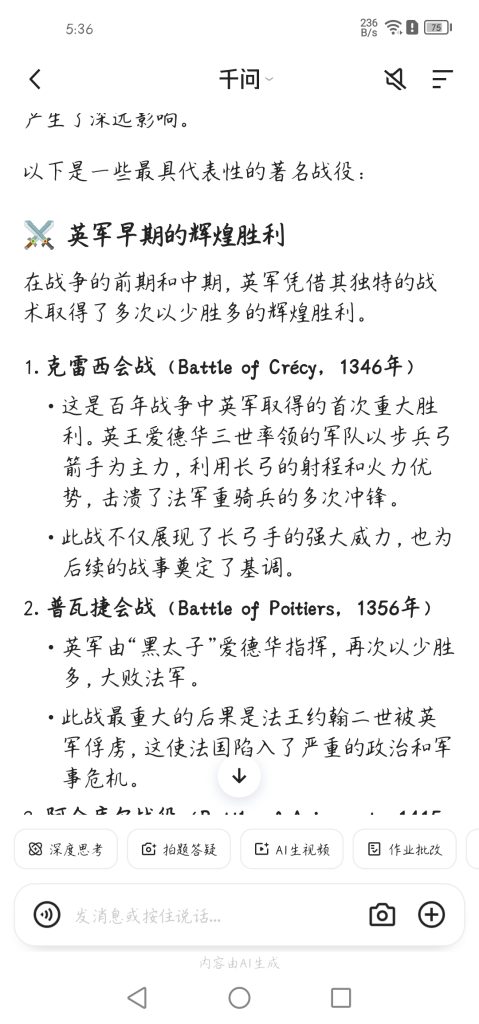 5:36
236
B/s
75
千问
产生了深远影响。
以下是一些最具代表性的著名战役：
英军早期的辉煌胜利
在战争的前期和中期，英军凭借其独特的战
术取得了多次以少胜多的辉煌胜利。
1. 克雷西会战（Battle of Crécy，1346年）
• 这是百年战争中英军取得的首次重大胜
利。英王爱德华三世率领的军队以步兵弓
箭手为主力，利用长弓的射程和火力优
势，击溃了法军重骑兵的多次冲锋。
• 此战不仅展现了长弓手的强大威力，也为
后续的战事奠定了基调。
2. 普瓦捷会战（Battle of Poitiers，1356年）
• 英军由“黑太子”爱德华指挥，再次以少胜
多，大败法军。
• 此战最重大的后果是法王约翰二世被英
军俘虏，这使法国陷入了严重的政治和军
事危机。
深度思考
拍题答疑
AI生视频
作业批改
发消息或按住说话...
内容由AI生成